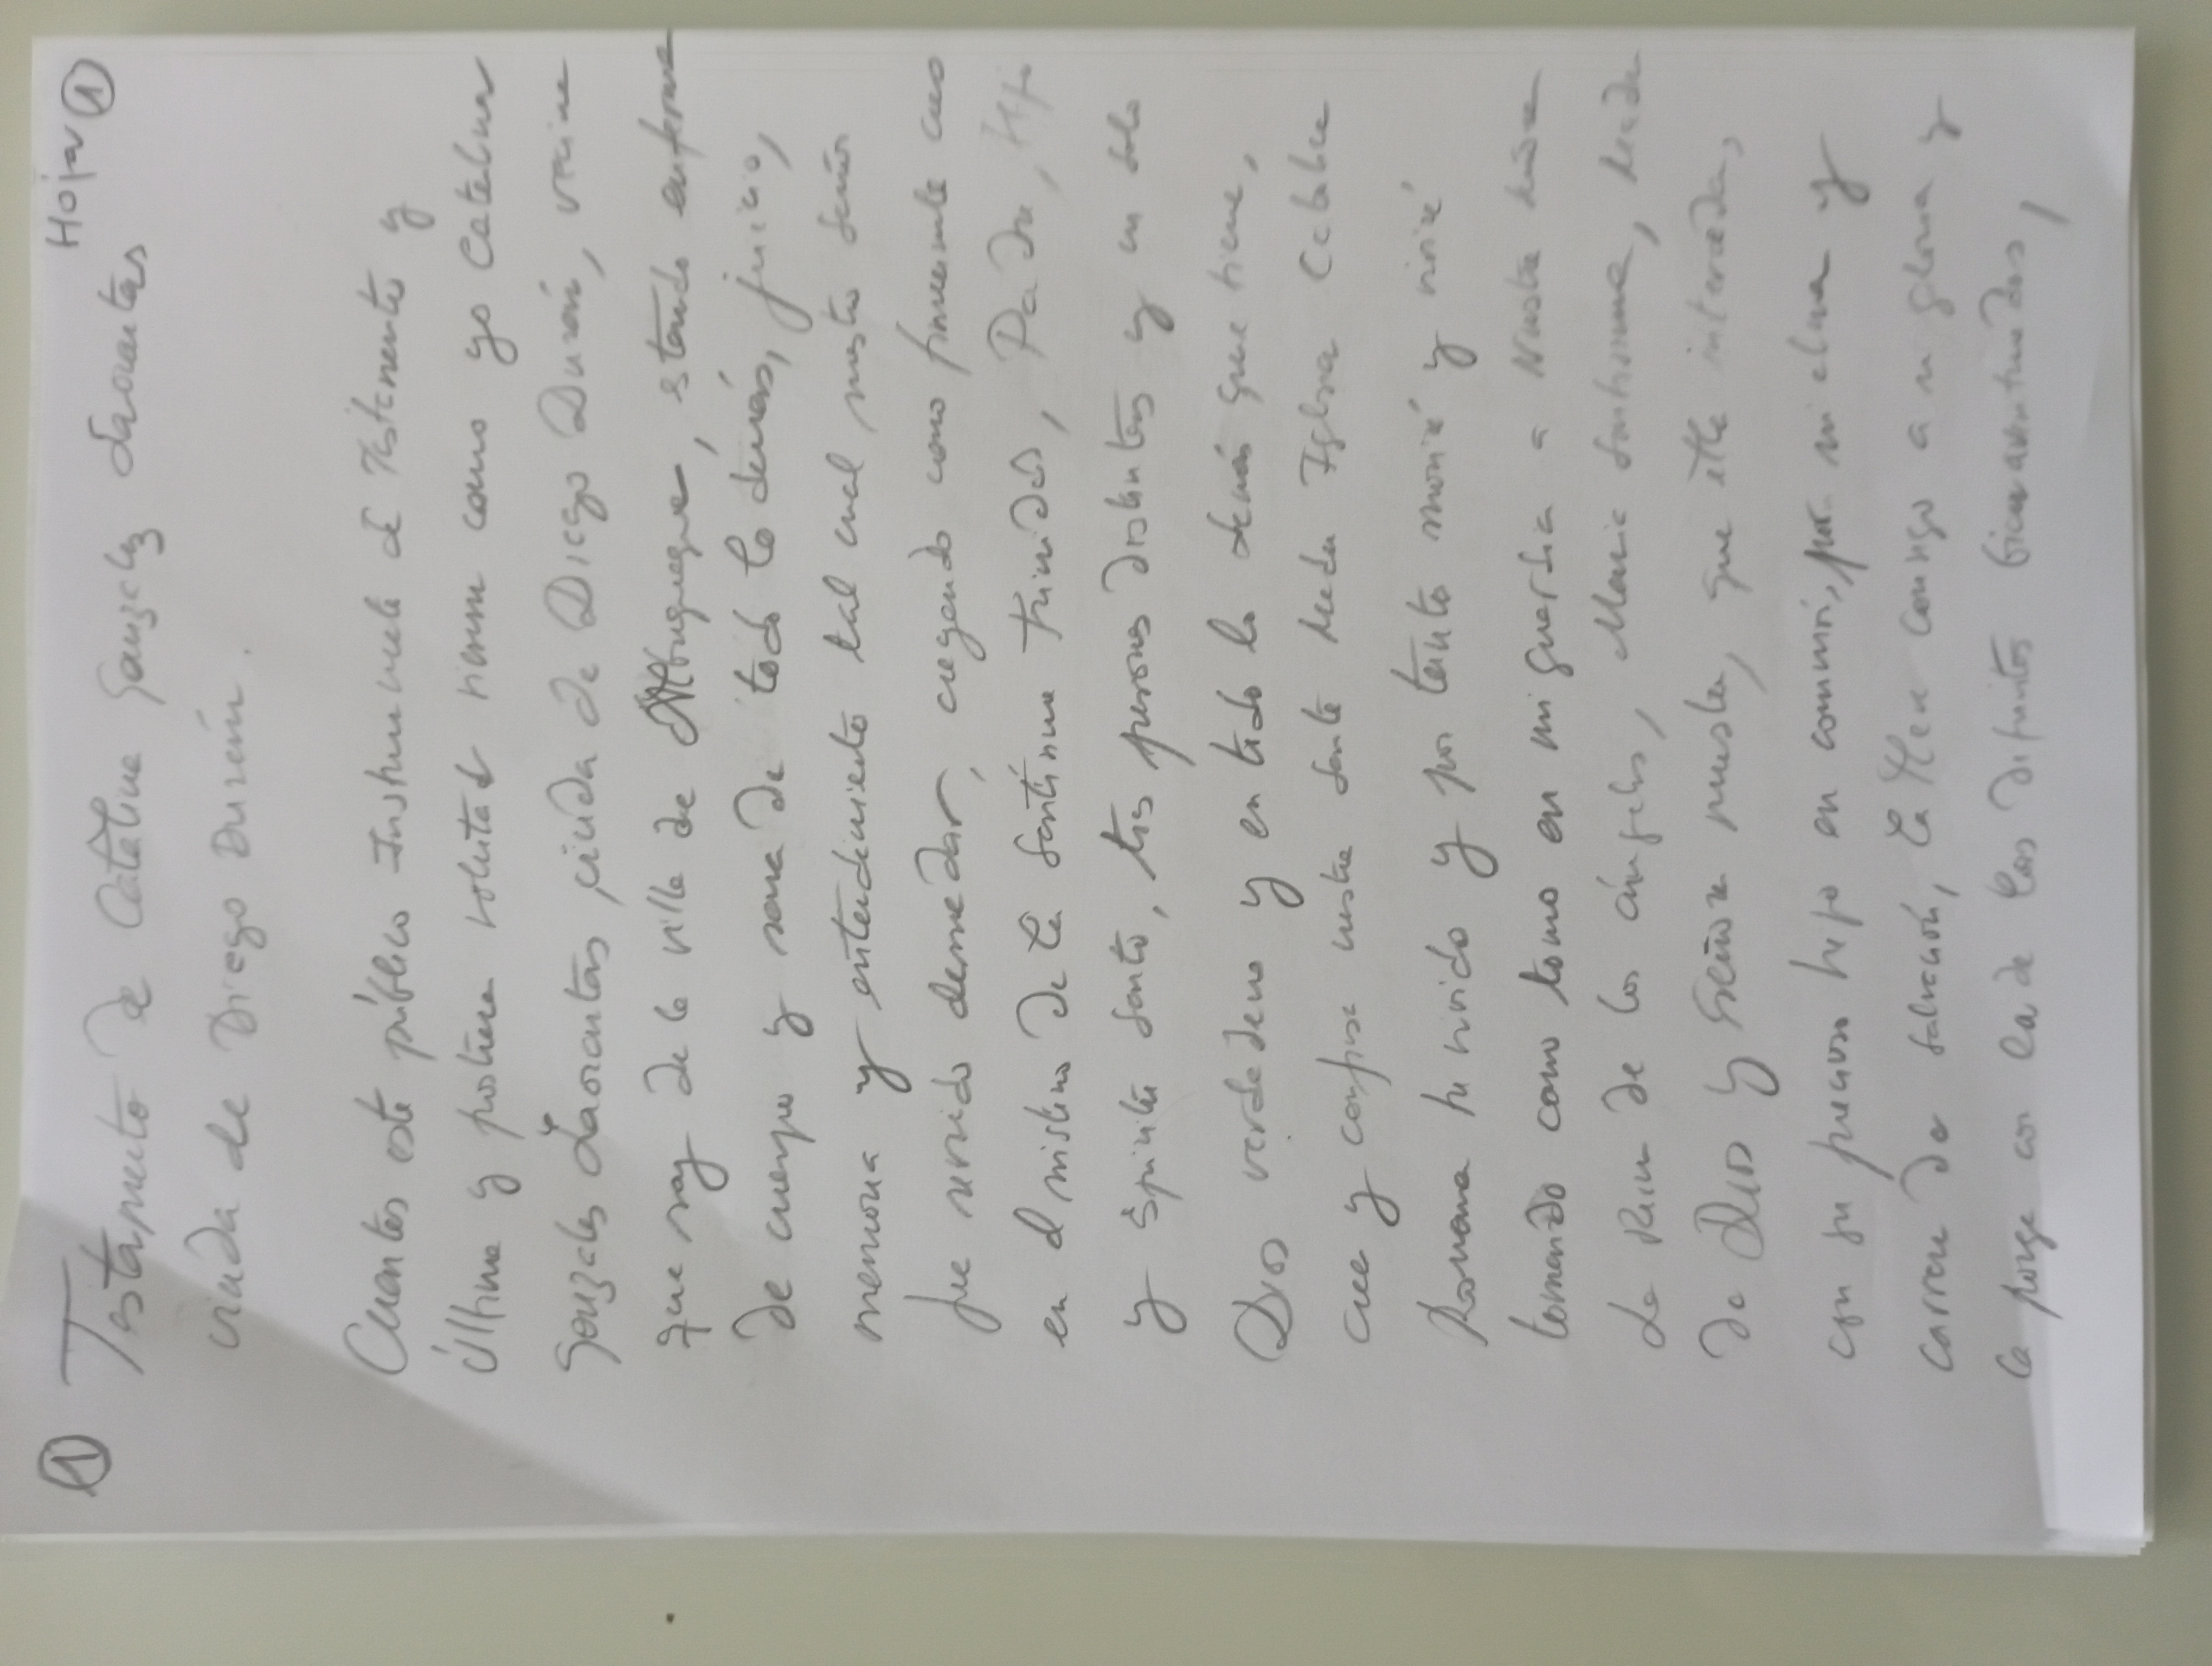 ① Hoja ①
Testamento de Catalina Gonzalez
viuda de Diego Durán.
Cuantos este público Instrumento de Testamento y
Última y postrera voluntad vieren como yo Catalina
Gonzales viuda de Diego Durán, vecina
que soy de la villa de Alburquerque, estando enferma
de cuerpo y sana de todo lo demás, juicio,
memoria y entendimiento tal cual nuestro Señor
fue servido de me dar, creyendo como firmemente creo
en el misterio de la Santísima Trinidad, Padre, Hijo
y Espíritu Santo, tres personas distintas y un solo
Dios verdadero y en todo lo demás que tiene,
cree y confiesa nuestra Santa Madre Iglesia Catolica
Romana he vivido y por tanto moriré y viviré
tomando como tomo en mi guardia a Nuestra Señora
La Reina de los ángeles, Maria Santisima, Madre
de Dios y Señora nuestra, que ella interceda,
con su precioso hijo en común, por mi alma y
carrera de salvación, la lleve consigo a su gloria y
la ponga con la de los difuntos bienaventurados,